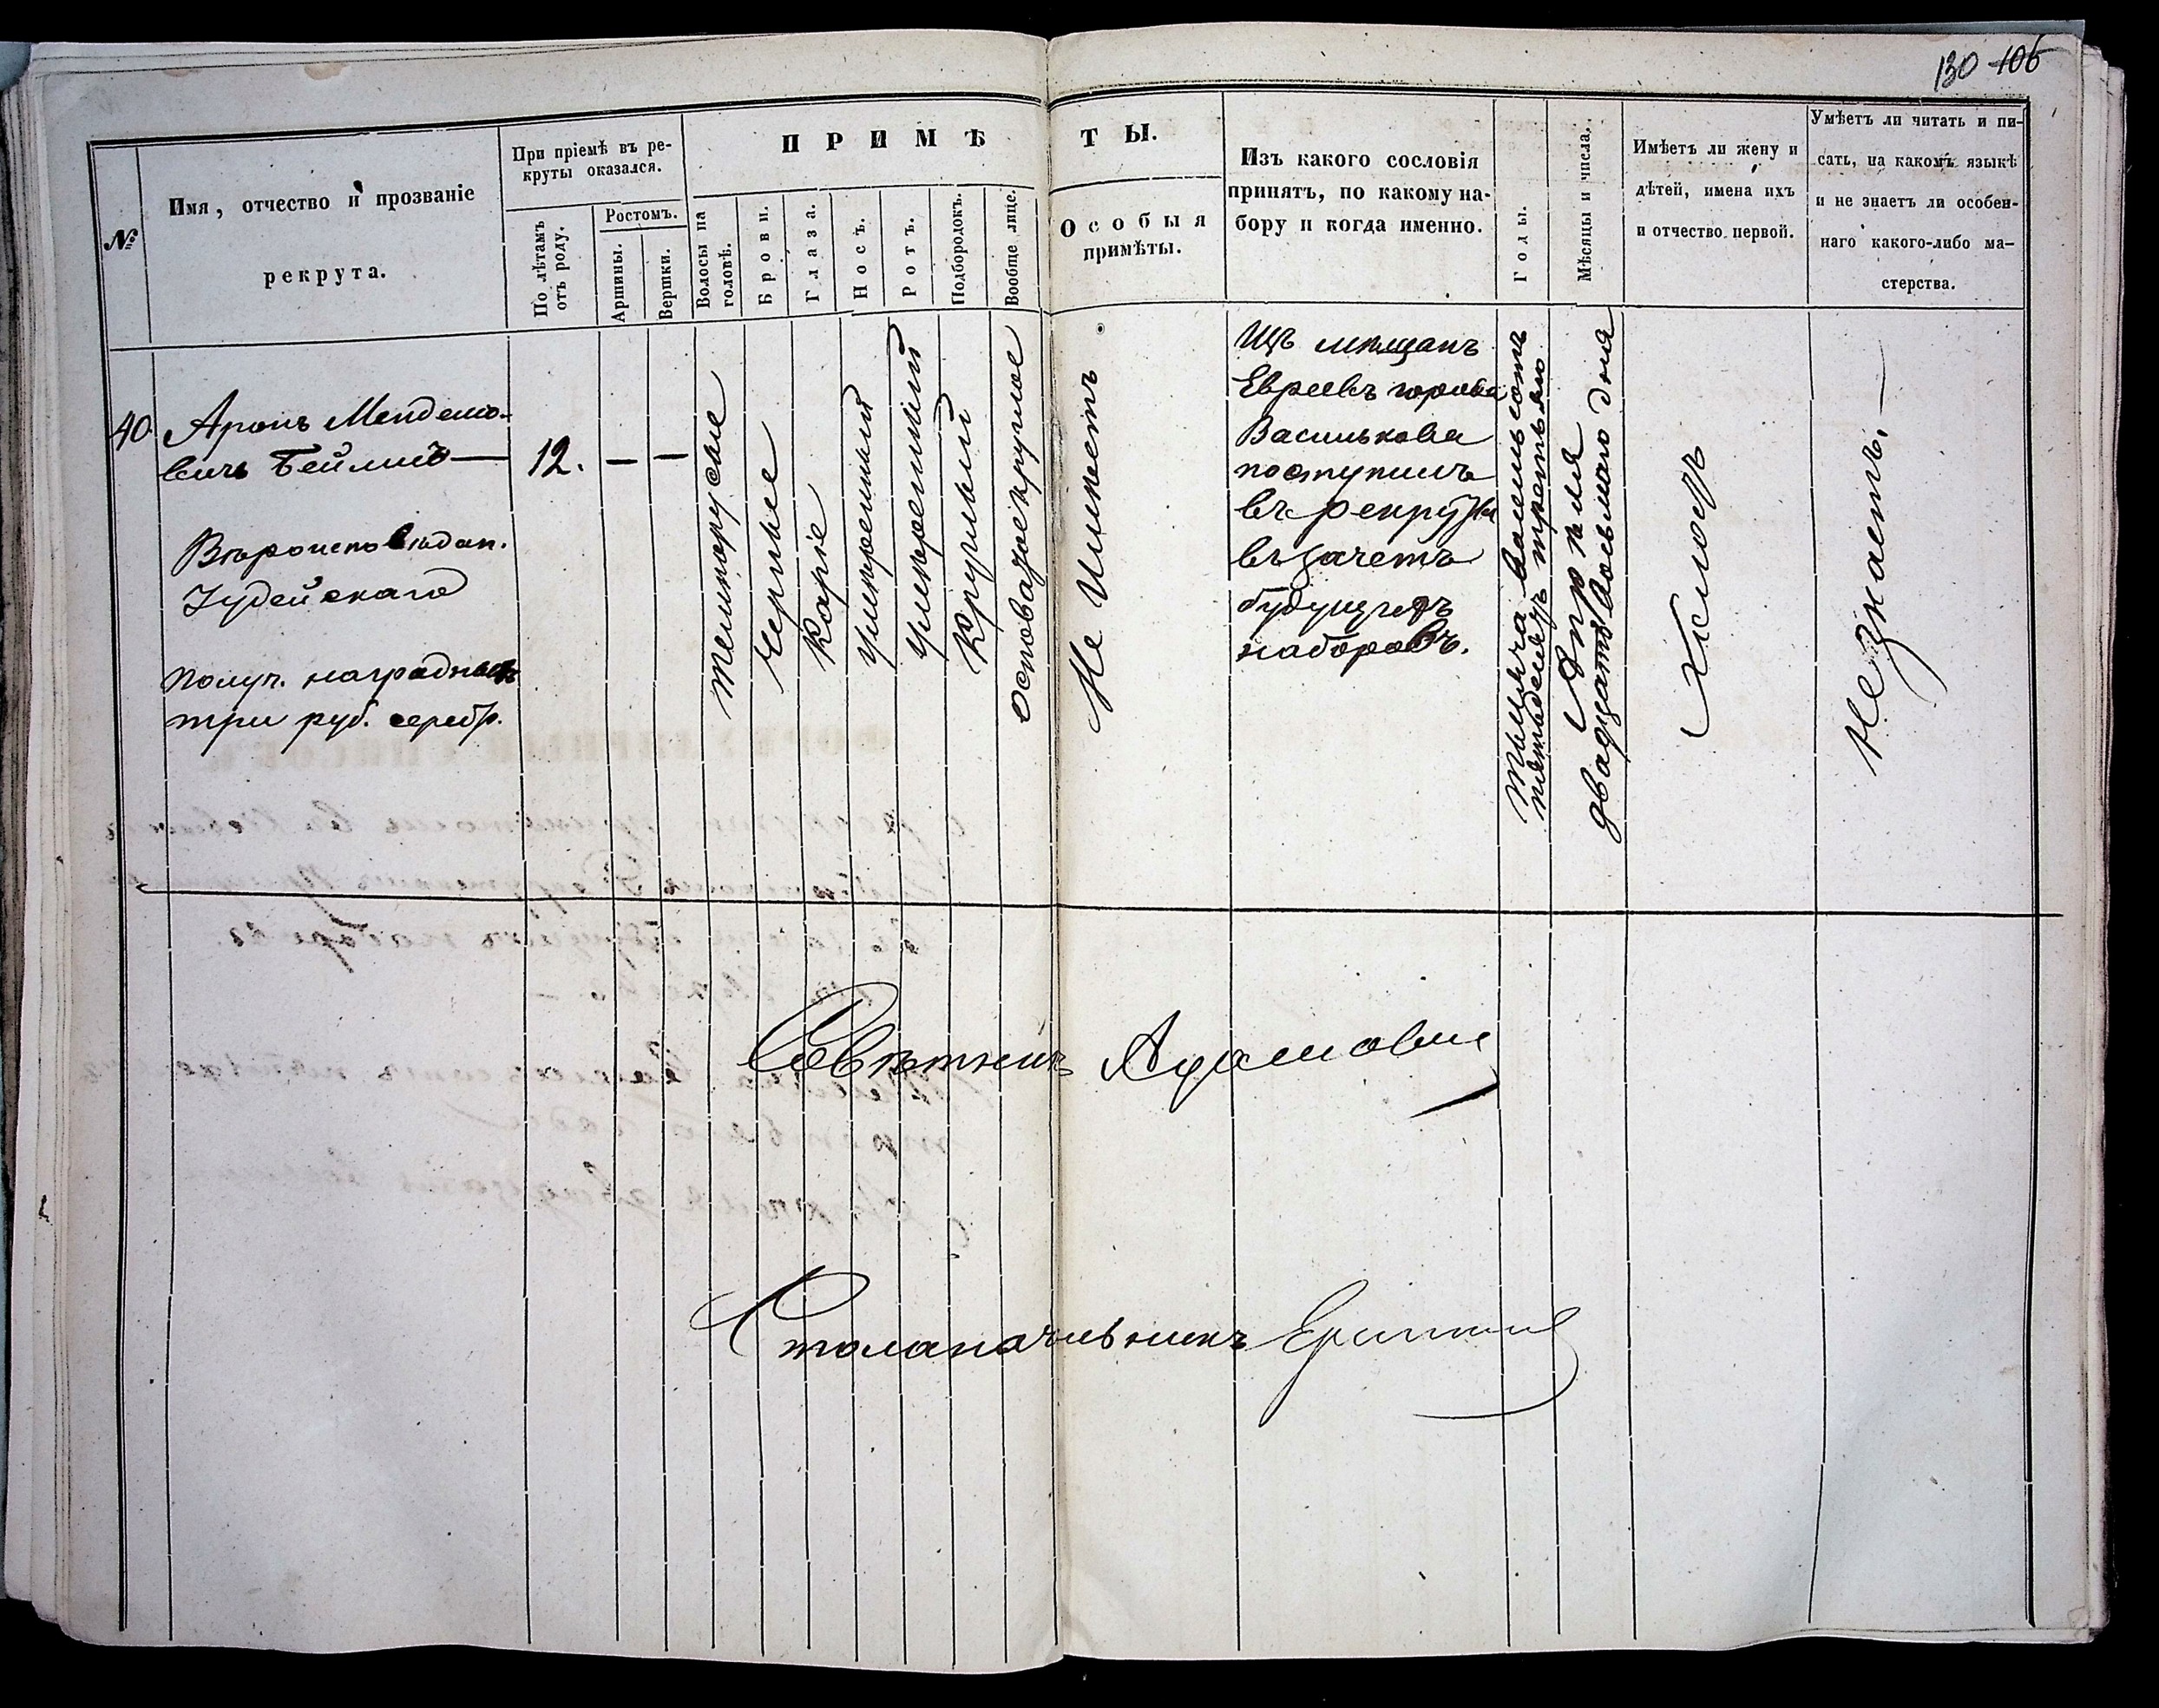 130 106
№
Имя, отчество и прозваніе
рекрута.
При пріемѣ въ ре-
круты оказался.
По лѣтамъ
отъ роду.
Ростомъ.
Аршины.
Вершки.
ПРИМѢТЫ.
Волосы на
головѣ.
Брови.
Глаза.
Носъ.
Ротъ.
Подбородокъ.
Вообще лице.
Особыя
примѣты.
Изъ какого сословія
принятъ, по какому на-
бору и когда именно.
Годы.
Мѣсяцы и числа.
Имѣетъ ли жену и
дѣтей, имена ихъ
и отчество первой.
Умѣетъ ли читать и пи-
сать, на какомъ языкѣ
и не знаетъ ли особен-
наго какого-либо ма-
стерства.
40.
Аронъ Менделю-
вичъ Бейлинъ —
Вѣроисповѣдан.
Іудейскаго
Получ. наградныхъ
три руб. серебр.
12.
—
—
темнорусые
черные
каріе
умѣренный
умѣренный
круглый
основазоекруглое
Не Имѣетъ
Изъ мѣщанъ
Евреевъ города
Василькова
поступилъ
въ рекруты
въ зачетъ
будущихъ
наборовъ.
Тысяча восемьсотъ
пятьдесятъ третьяго
Апрѣля
двадцать восьмаго дня
Холостъ
Незнаетъ. —
Совѣтникъ
Столоначальникъ